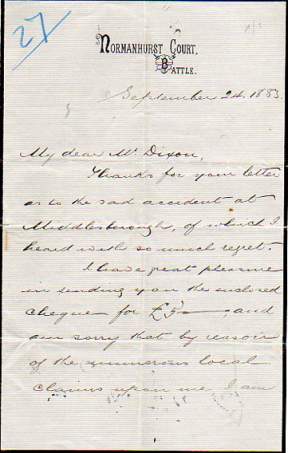 27
Normanhurst Court,
Battle.
September 24. 1883.
My dear Mr Dixon,
Thanks for your letter
as to the sad accident at
Middlesborough, of which I
heard with so much regret.
I have great pleasure
in sending you the enclosed
cheque for £5 — and
am sorry that by reason
of the numerous local
claims upon me I am